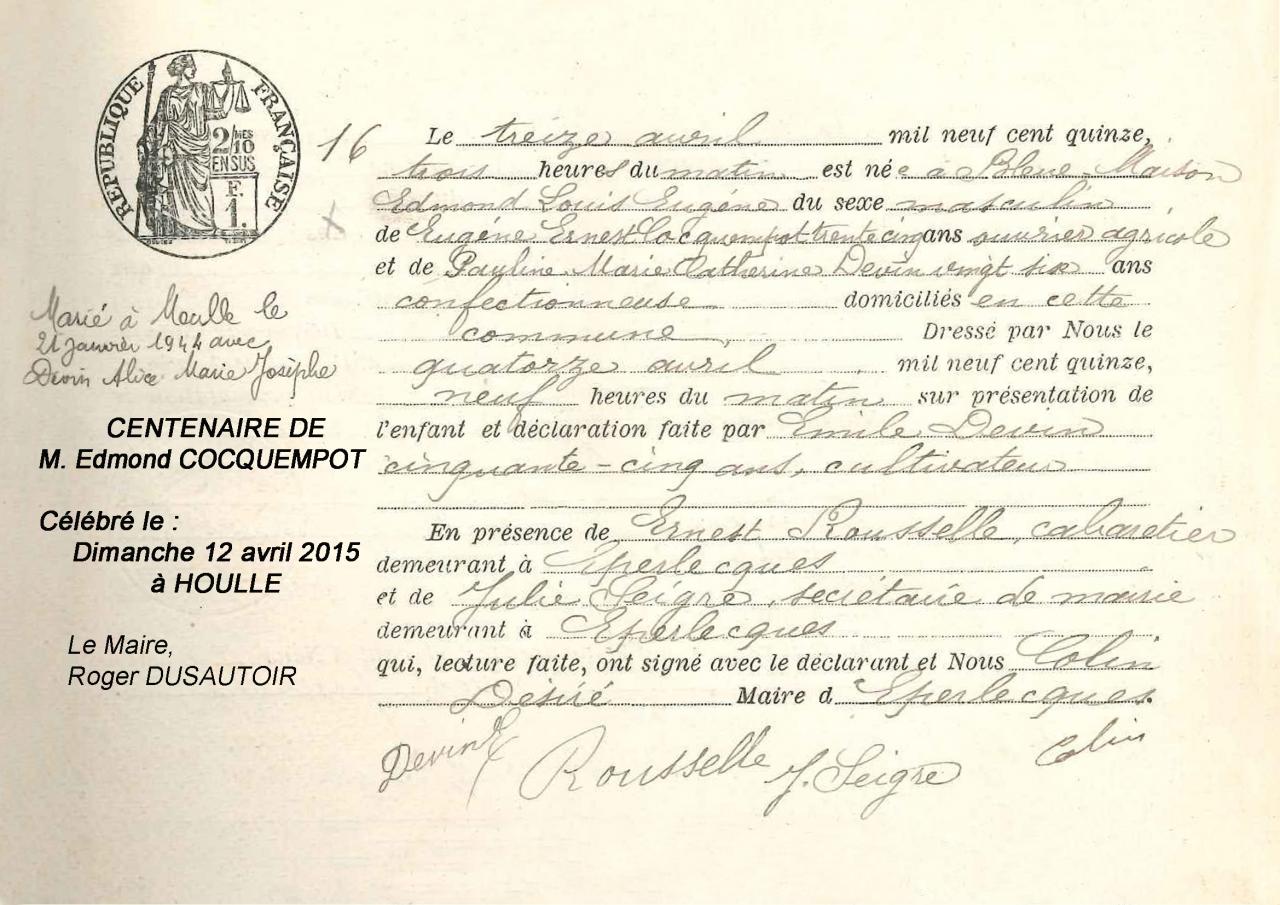 RÉPUBLIQUE FRANÇAISE
2/MES
10
EN SUS
F.
1.
16
Le treize avril mil neuf cent quinze,
trois heures du matin est né à Bleue-Maison
Edmond Louis Eugène du sexe masculin
de Eugène Ernest Cocquempot trente cinq ans ouvrier agricole
et de Pauline Marie Catherine Devin vingt six ans
confectionneuse domiciliés en cette
commune, Dressé par Nous le
quatorze avril mil neuf cent quinze,
neuf heures du matin sur présentation de
l'enfant et déclaration faite par Emile Devin
cinquante-cinq ans, cultivateur
En présence de Ernest Rousselle, cabaretier
demeurant à Eperlecques
et de Julie Seigre, secrétaire de mairie
demeurant à Eperlecques
qui, lecture faite, ont signé avec le déclarant et Nous Colin
Désiré Maire d Eperlecques.
Devin E Rousselle J. Seigre Colin
Marié à Moulle le
21 janvier 1944 avec
Devin Alice Marie Josèphe
CENTENAIRE DE
M. Edmond COCQUEMPOT
Célébré le :
Dimanche 12 avril 2015
à HOULLE
Le Maire,
Roger DUSAUTOIR